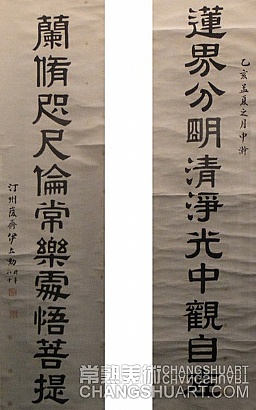 乙亥孟夏之月中澣
蓮界分明清淨光中觀自在
蘭脩咫尺倫常樂處悟菩提
汀州 伊立勳
常熟美術 CHANGSHUART
CHANGSHUART.COM